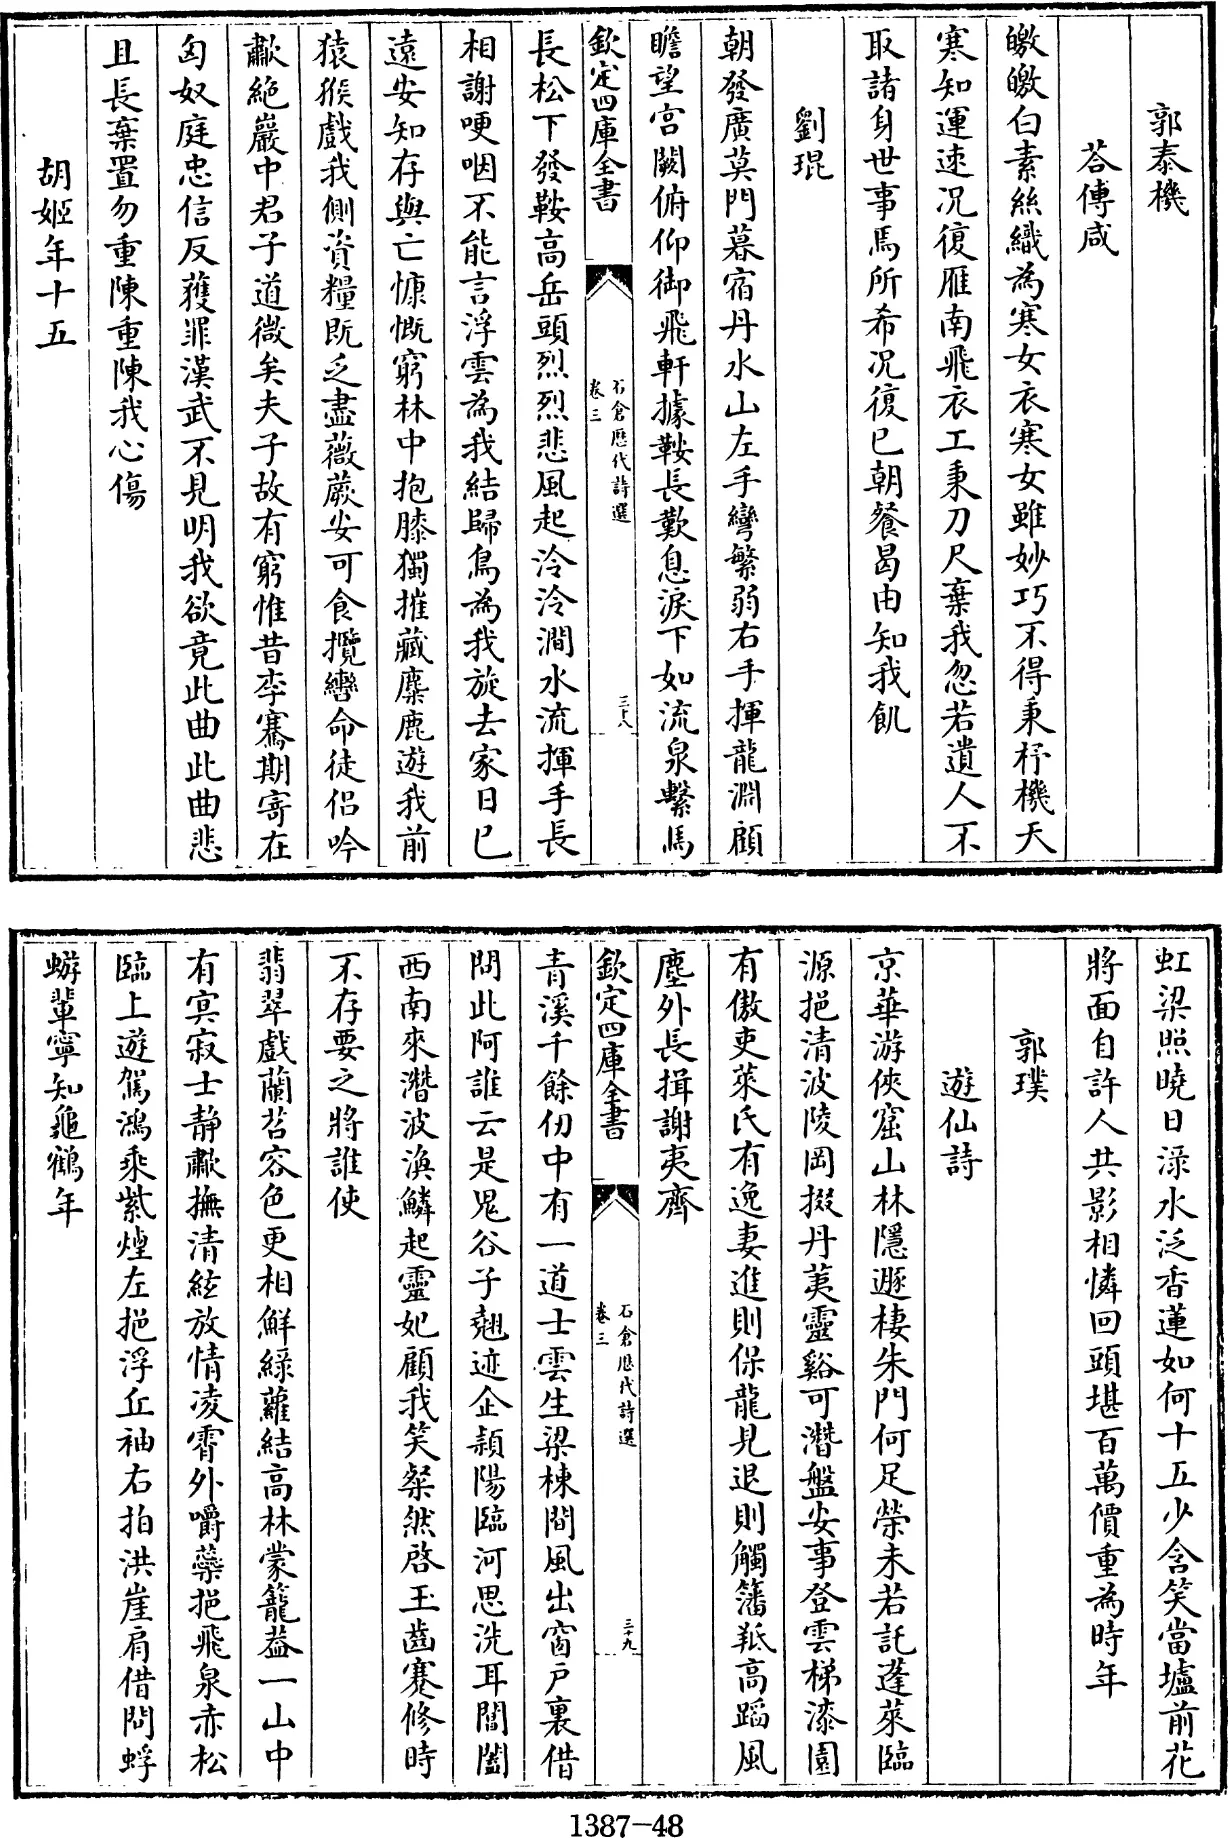 郭泰機
荅傅咸
皦皦白素絲織為寒女衣寒女雖妙巧不得秉杼機天
寒知運速况復雁南飛衣工秉刀尺棄我忽若遺人不
取諸身世事焉所希况復已朝餐曷由知我飢
劉琨
朝發廣莫門暮宿丹水山左手彎繁弱右手揮龍淵顧
瞻望宫闕俯仰御飛軒據鞍長歎息淚下如流泉繫馬
欽定四庫全書
石倉歴代詩選
卷三
三十八
長松下發鞍高岳頭烈烈悲風起泠泠澗水流揮手長
相謝哽咽不能言浮雲為我結歸鳥為我旋去家日已
遠安知存與亡慷慨窮林中抱膝獨摧藏麋鹿遊我前
猿猴戲我側資糧既乏盡薇蕨安可食攬轡命徒侣吟
歗絶巖中君子道微矣夫子故有窮惟昔李騫期寄在
匈奴庭忠信反獲罪漢武不見明我欲竟此曲此曲悲
且長棄置勿重陳重陳我心傷
胡姬年十五
虹梁照曉日渌水泛香蓮如何十五少含笑當壚前花
將面自許人共影相憐回頭堪百萬價重為時年
郭璞
遊仙詩
京華游俠窟山林隱遯棲朱門何足榮未若託蓬萊臨
源挹清波陵岡掇丹荑靈谿可潛盤安事登雲梯漆園
有傲吏萊氏有逸妻進則保龍見退則觸藩羝高蹈風
塵外長揖謝夷齊
欽定四庫全書
石倉歴代詩選
卷三
三十九
青溪千餘仞中有一道士雲生梁棟間風出窗户裏借
問此阿誰云是鬼谷子翹迹企頴陽臨河思洗耳閶闔
西南來潛波渙鱗起靈妃顧我笑粲然啓玉齒蹇修時
不存要之將誰使
翡翠戲蘭苕容色更相鮮綠蘿結高林蒙籠葢一山中
有冥寂士静歗撫清絃放情凌霄外嚼蘂挹飛泉赤松
臨上遊駕鴻乘紫煙左挹浮丘袖右拍洪崖肩借問蜉
蝣輩寧知龜鶴年
1387-48